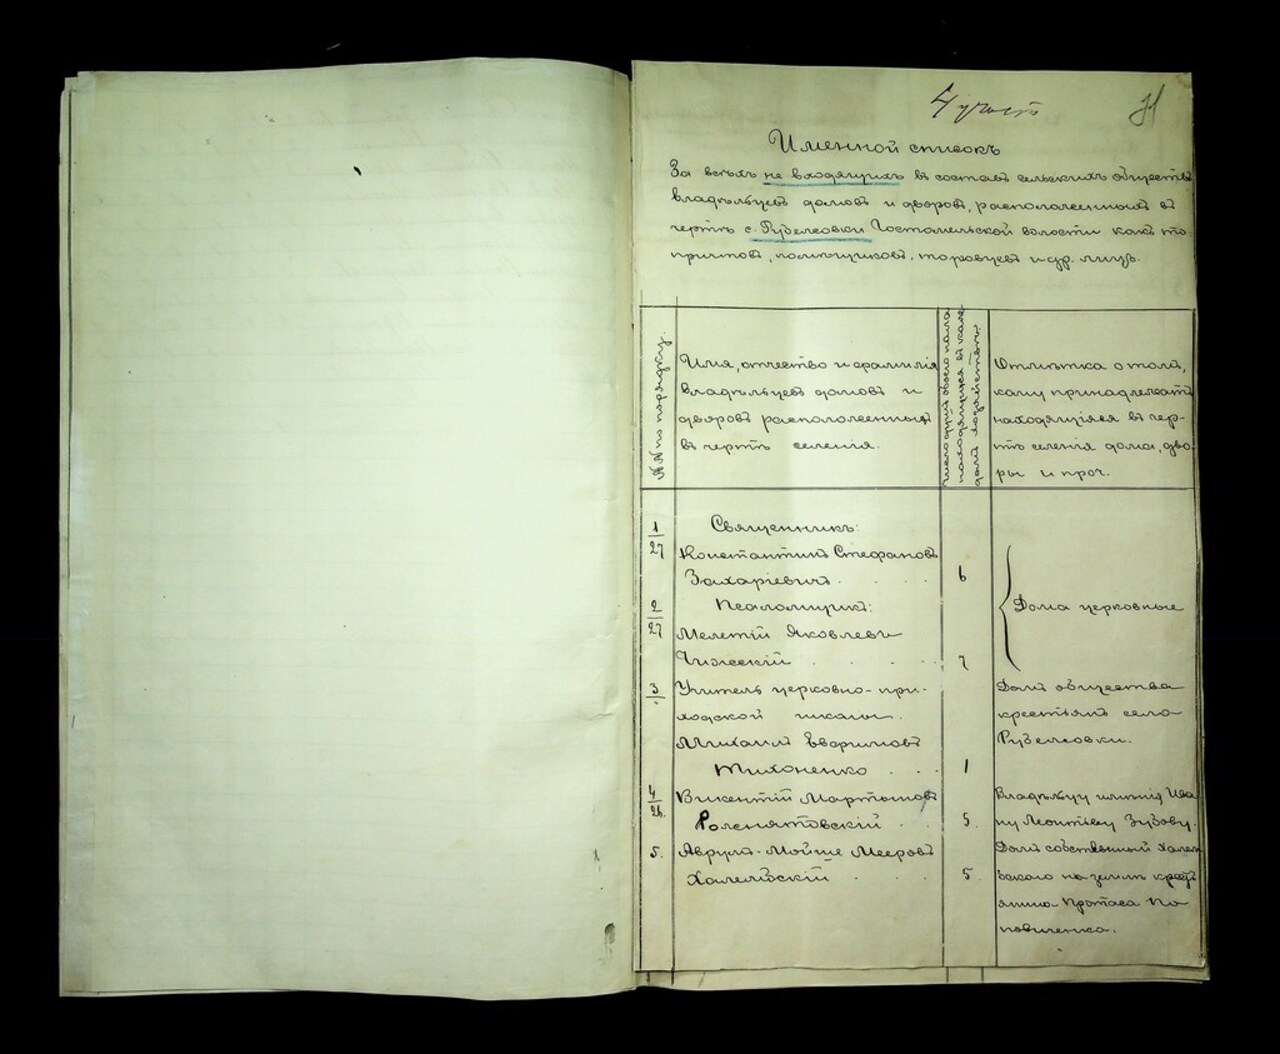 4 участ.
Именной списокъ
За всѣхъ не входящихъ въ составъ сельскихъ обществъ
владѣльцевъ домовъ и дворовъ, расположенныхъ въ
чертѣ с. Рубежовки Гостомельской волости какъ то:
причтовъ, помѣщиковъ, торговцевъ и др. лицъ.
№№ по порядку.
Имя, отчество и фамилія
владѣльцевъ домовъ и
дворовъ расположенныхъ
въ чертѣ селенія.
Число душъ обоего пола
находящихся въ каж-
домъ хозяйствѣ.
Отмѣтка о томъ,
кому принадлежатъ
находящіяся въ чер-
тѣ селенія дома, дво-
ры и проч.
1/27 Священникъ:
Константинъ Стефановъ
Захаріевичъ . . . . 6
2/27 Псаломщикъ:
Мелетій Яковлевъ
Чижескій . . . . 7
Дома церковные
3 Учитель церковно-при-
ходской школы.
Михаилъ Евфимовъ
Тихоненко . . . 1
Домъ общества
крестьянъ село
Рубежовки.
4/26. Викентій Мартыновъ
. . 5.
Владѣльцу имѣнія Ива
ну Леонтьеву Зубову.
5. Аврумъ-Мойше Мееровъ
Халемскій . . . 5.
Домъ собственный Халем
скаго на землѣ крест
янина Протаса По
повиченка.